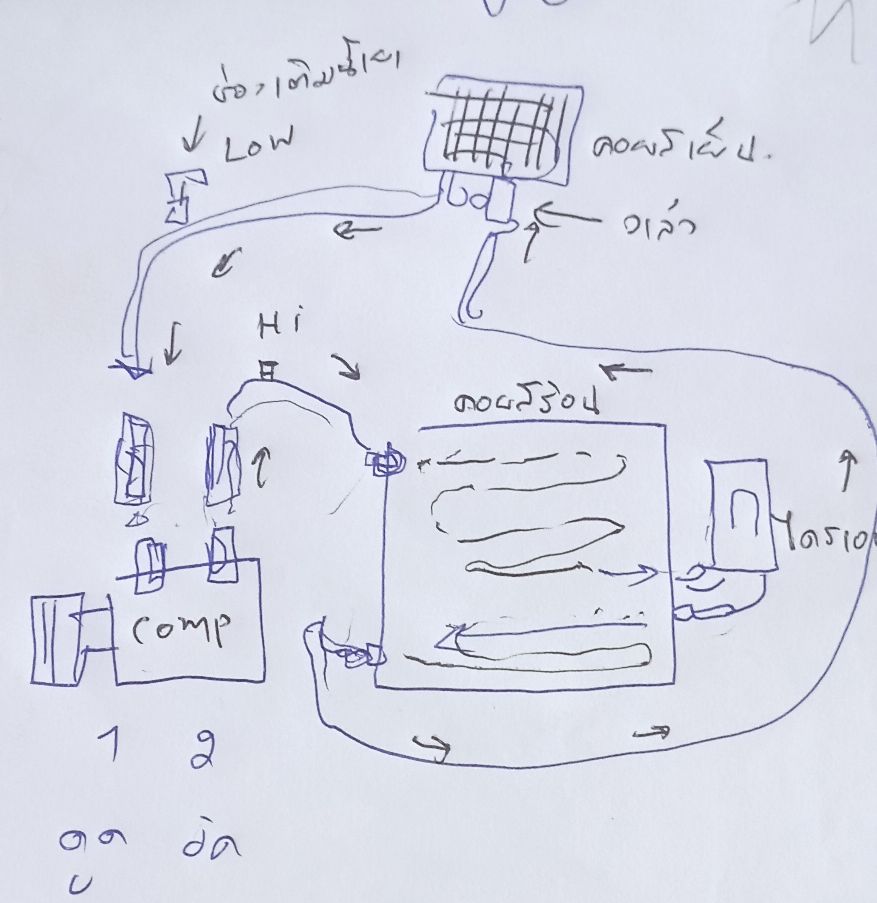 ช่องเติมน้ำยา
LOW
คอยล์เย็น.
วาล์ว
Hi
คอยล์ร้อน
ไดรเออ
comp
1 2
ดูด อัด